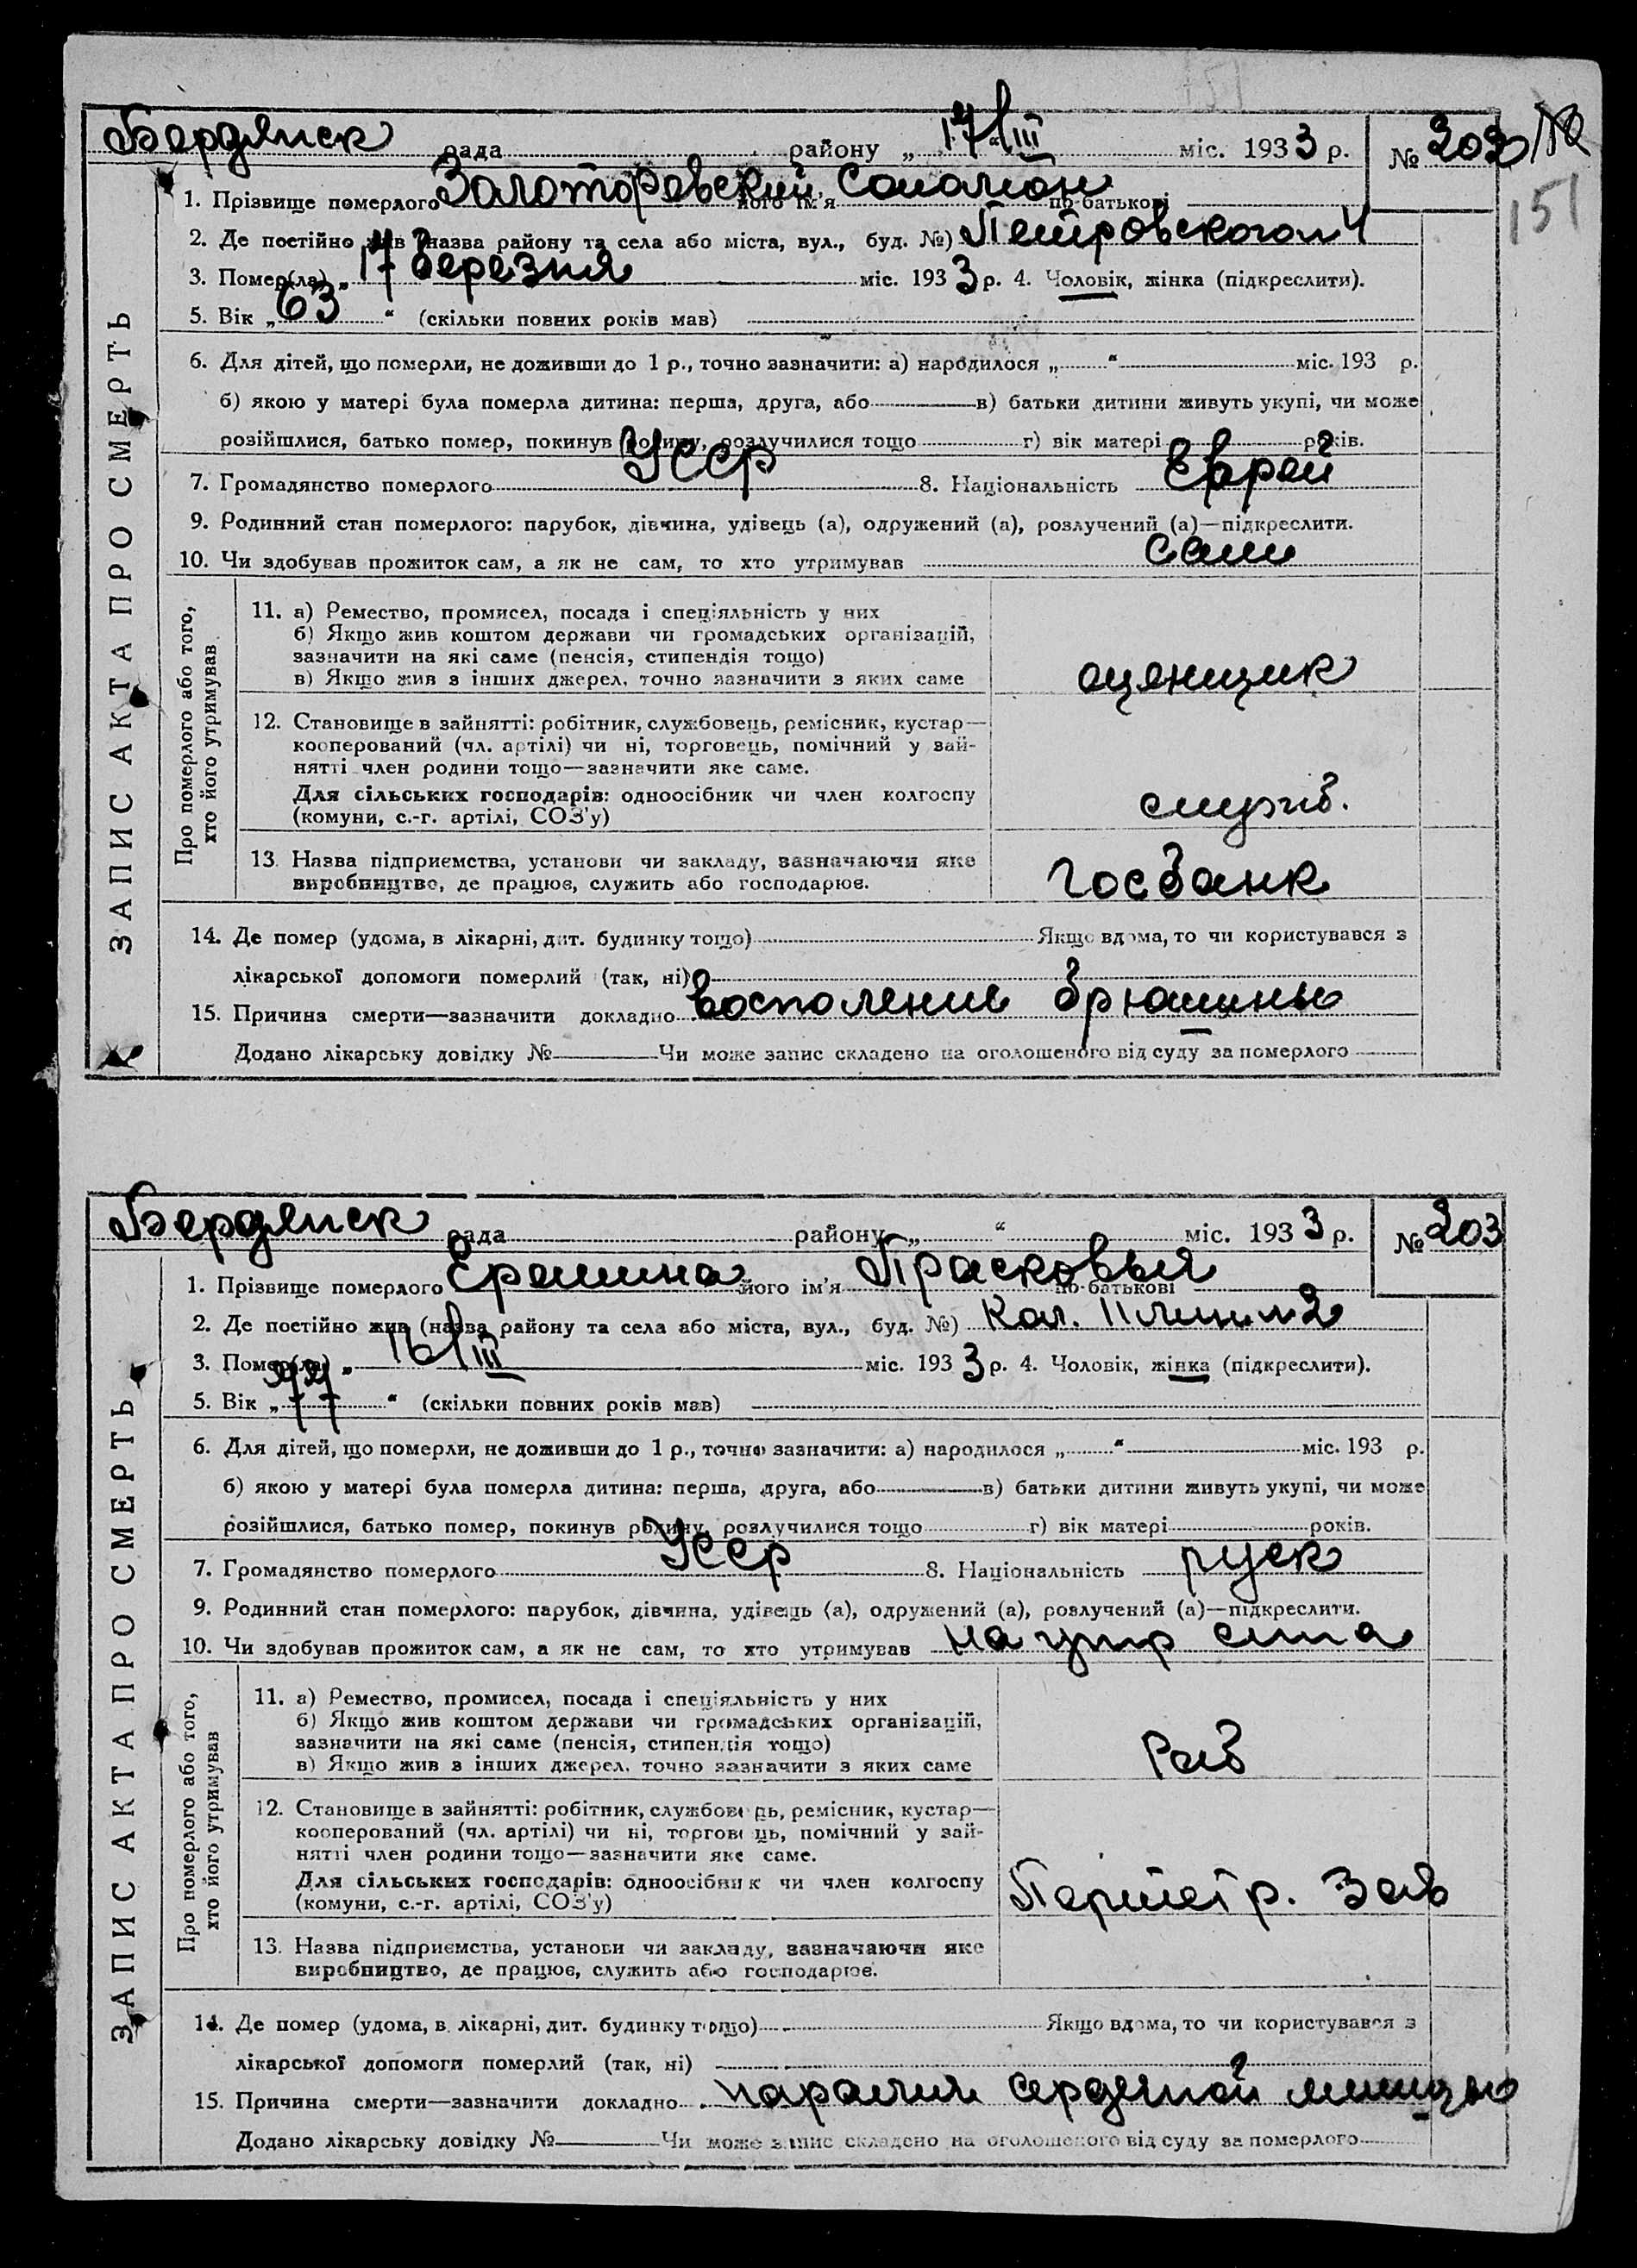 Бердянск рада района „ 17/III міс. 1933 р. № 202
151
ЗАПИС АКТА ПРО СМЕРТЬ
1. Прізвище померлого Золоторевский його ім'я Соломон по-батькові
2. Де постійно жив (назва району та села або міста, вул., буд. №) Петровского n 4
3. Помер(ла) „ 17 березня міс. 1933 р. 4. Чоловік, жінка (підкреслити).
5. Вік „ 63 “ (скільки повних років мав)
6. Для дітей, що померли, не доживши до 1 р., точно зазначити: а) народилося „ “ міс. 193 р.
б) якою у матері була померла дитина: перша, друга, або в) батьки дитини живуть укупі, чи може
розійшлися, батько помер, покинув родину, розлучилися тощо г) вік матері років.
7. Громадянство померлого УССР 8. Національність Еврей
9. Родинний стан померлого: парубок, дівчина, удівець (а), одружений (а), розлучений (а)—підкреслити.
10. Чи здобував прожиток сам, а як не сам, то хто утримував сам
Про померлого або того, хто його утримував
11. а) Ремество, промисел, посада і спеціяльність у них
б) Якщо жив коштом держави чи громадських організацій,
зазначити на які саме (пенсія, стипендія тощо)
в) Якщо жив з інших джерел, точно зазначити з яких саме
оценщик
12. Становище в зайнятті: робітник, службовець, ремісник, кустар—
кооперований (чл. артілі) чи ні, торговець, помічний у зай-
нятті член родини тощо—зазначити яке саме.
Для сільських господарів: одноосібник чи член колгоспу
(комуни, с.-г. артілі, СОЗ'у)
служб.
13. Назва підприємства, установи чи закладу, зазначаючи яке
виробництво, де працює, служить або господарює.
Госбанк
14. Де помер (удома, в лікарні, дит. будинку тощо) Якщо вдома, то чи користувався з
лікарської допомоги померлий (так, ні)
15. Причина смерти—зазначити докладно восполение брюшины
Додано лікарську довідку № Чи може запис складено на оголошеного від суду за померлого
Бердянск рада району „ “ міс. 1933 р. № 203
ЗАПИС АКТА ПРО СМЕРТЬ
1. Прізвище померлого Ерошина його ім'я Прасковья по-батькові
2. Де постійно жив (назва району та села або міста, вул., буд. №) Кол.
3. Помер(ла) „ 16/III міс. 1933 р. 4. Чоловік, жінка (підкреслити).
5. Вік „ 77 “ (скільки повних років мав)
6. Для дітей, що померли, не доживши до 1 р., точно зазначити: а) народилося „ “ міс. 193 р.
б) якою у матері була померла дитина: перша, друга, або в) батьки дитини живуть укупі, чи може
розійшлися, батько помер, покинув родину, розлучилися тощо г) вік матері років.
7. Громадянство померлого Усср 8. Національність руск
9. Родинний стан померлого: парубок, дівчина, удівець (а), одружений (а), розлучений (а)—підкреслити.
10. Чи здобував прожиток сам, а як не сам, то хто утримував на утр сына
Про померлого або того, хто його утримував
11. а) Ремество, промисел, посада і спеціяльність у них
б) Якщо жив коштом держави чи громадських організацій,
зазначити на які саме (пенсія, стипендія тощо)
в) Якщо жив з інших джерел, точно зазначити з яких саме
Раб
12. Становище в зайнятті: робітник, службовець, ремісник, кустар—
кооперований (чл. артілі) чи ні, торговець, помічний у зай-
нятті член родини тощо—зазначити яке саме.
Для сільських господарів: одноосібник чи член колгоспу
(комуни, с.-г. артілі, СОЗ'у)
Першетр. Зав
13. Назва підприємства, установи чи закладу, зазначаючи яке
виробництво, де працює, служить або господарює.
14. Де помер (удома, в лікарні, дит. будинку тощо) Якщо вдома, то чи користувався з
лікарської допомоги померлий (так, ні)
15. Причина смерти—зазначити докладно поролич сердечной мышцы
Додано лікарську довідку № Чи може запис складено на оголошеного від суду за померлого